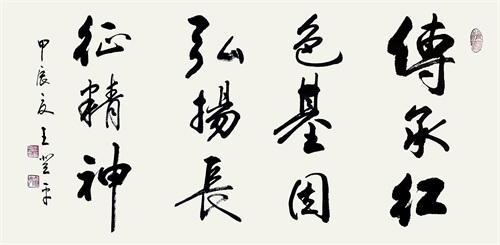 傳承紅
色基因
弘揚長
征精神
甲辰夏王登平